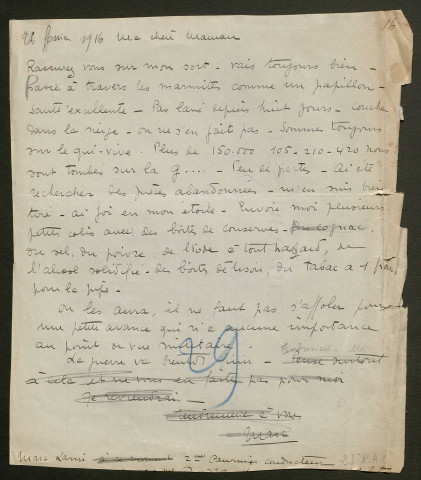 16
28 février 1916 Ma chère Maman
Rassurez vous sur mon sort - vais toujours bien -
Passe à travers les marmites comme un papillon -
Santé excellente - Pas lavé depuis huit jours - couche
dans la neige - on ne s'en fait pas - Sommes toujours
sur le qui-vive. Plus de 150.000 105-210-420 nous
sont tombés sur la g.... - Peu de pertes - Ai été
rechercher des pièces abandonnées - m'en suis bien
tiré - ai foi en mon étoile - Envoie moi plusieurs
petits colis avec des boîtes de conserves - Du cognac,
du sel, du poivre, de l'iode à tout hasard, de
l'alcool solidifié - des boîtes de tison, du tabac à 1 franc
pour la pipe -
On les aura, il ne faut pas s'affoler pour
une petite avance qui n'a aucune importance
au point de vue militaire.
La guerre va bientôt finir -
29
à cela et ne vous en faites pas pour moi
Je reviendrai -
tendrement à vous
Marc
Marc 2ème Canonnier conducteur